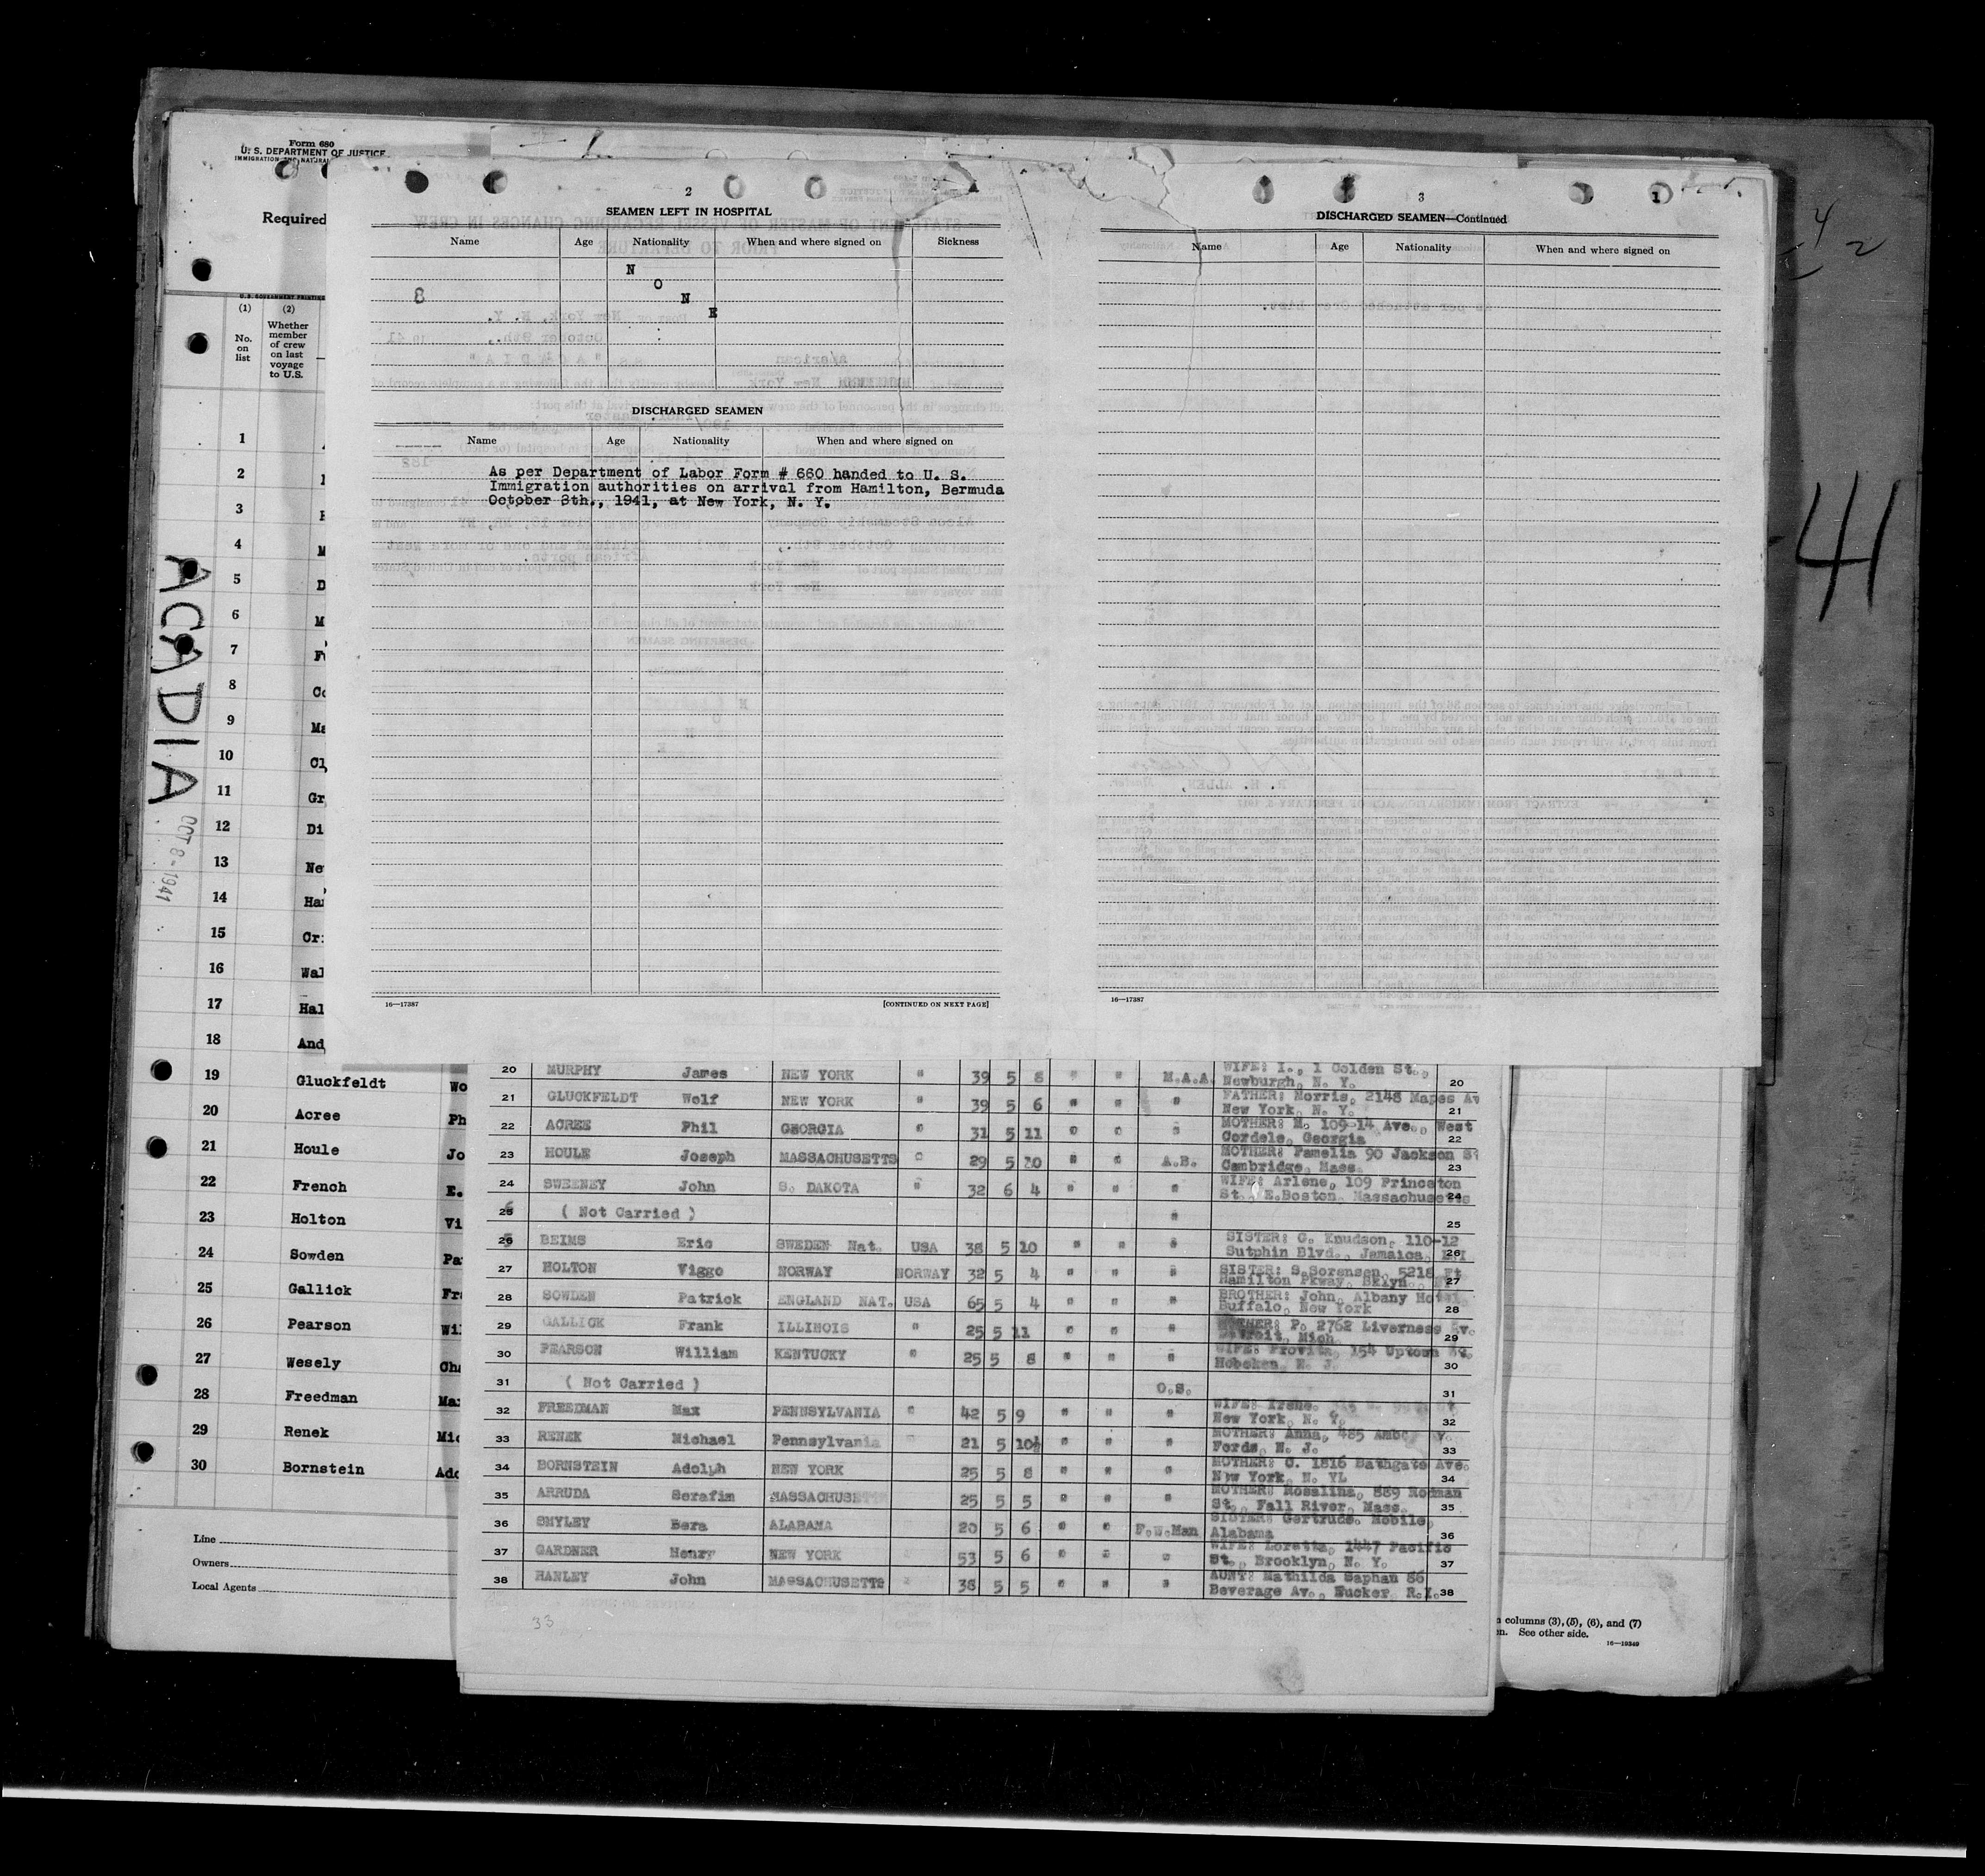 Form 680
U. S. DEPARTMENT OF JUSTICE
Required
(1)
(2)
No. on list
Whether member of crew on last voyage to U.S.
1
2
3
4
5
6
7
8
9
10
11
12
13
14
15
16
17
18
19 Gluckfeldt Wo
20 Acree Ph
21 Houle Jo
22 French E.
23 Holton Vi
24 Sowden Pa
25 Gallick Fra
26 Pearson Wil
27 Wesely Cha
28 Freedman Ma
29 Renek Mic
30 Bornstein Ado
Line
Owners
Local Agents
ACADIA
OCT 8-1941
2
SEAMEN LEFT IN HOSPITAL
Name Age Nationality When and where signed on Sickness
N
O
N
E
DISCHARGED SEAMEN
Name Age Nationality When and where signed on
As per Department of Labor Form # 660 handed to U. S.
Immigration authorities on arrival from Hamilton, Bermuda
October 8th., 1941, at New York, N. Y.
16—17387 [CONTINUED ON NEXT PAGE]
3
DISCHARGED SEAMEN—Continued
Name Age Nationality When and where signed on
16—17387
42
41
20 MURPHY James NEW YORK " 39 5 8 " " M.A.A. WIFE: I., 1 Colden St., Newburgh, N. Y. 20
21 GLUCKFELDT Wolf NEW YORK " 39 5 6 " " " FATHER: Morris, 2148 Mapes Av New York, N. Y. 21
22 ACREE Phil GEORGIA " 31 5 11 " " " MOTHER: M. 109-14 Ave., West Cordele, Georgia 22
23 HOULE Joseph MASSACHUSETTS " 29 5 10 " " A.B. MOTHER: Pamelia 90 Jackson St Cambridge, Mass. 23
24 SWEENEY John S. DAKOTA " 32 6 4 " " " WIFE: Arlene, 109 Princeton St., E.Boston, Massachusetts 24
25 ( Not Carried ) " 25
26 BEIMS Eric SWEDEN Nat. USA 38 5 10 " " " SISTER: G. Knudson, 110-12 Sutphin Blvd., Jamaica, 26
27 HOLTON Viggo NORWAY NORWAY 32 5 4 " " " SISTER: S.Sorensen, 5218 Ft Hamilton Pkway, Bklyn. 27
28 SOWDEN Patrick ENGLAND NAT. USA 65 5 4 " " " BROTHER: John, Albany Hotel Buffalo, New York 28
29 GALLICK Frank ILLINOIS " 25 5 11 " " " MOTHER: P. 2762 Liverness Av. Detroit, Mich. 29
30 PEARSON William KENTUCKY " 25 5 8 " " " WIFE: Provita, 154 Uptown Hoboken, N. J. 30
31 ( Not Carried ) O.S. 31
32 FREEDMAN Max PENNSYLVANIA " 42 5 9 " " " WIFE: Irene, New York, N. Y. 32
33 RENEK Michael Pennsylvania 21 5 10½ " " " MOTHER: Anna, 485 Fords, N. J. 33
34 BORNSTEIN Adolph NEW YORK 25 5 8 " " " MOTHER: C. 1816 Bathgate Ave. New York, N. YL 34
35 ARRUDA Serafim MASSACHUSETTS 25 5 5 " " " MOTHER: Rosalina, 889 Rodman St., Fall River, Mass. 35
36 SMYLEY Bera ALABAMA 20 5 6 " " F.W.Man SISTER: Gertrude, Mobile, Alabama 36
37 GARDNER Henry NEW YORK 53 5 6 " " " WIFE: Loretta, 1447 Pacific St., Brooklyn, N. Y. 37
38 HANLEY John MASSACHUSETTS " 38 5 5 " " " AUNT: Mathilda Saphan 86 Beverage Av., Tucker, R.I. 38
33
columns (3), (5), (6), and (7)
See other side.
16—19349